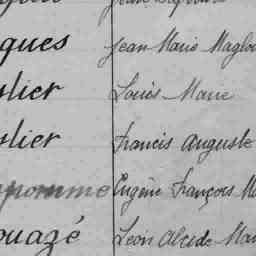 ques Jean Marie Maglo
lier Louis Marie
lier Francis Auguste
pomme Eugène François Ma
ouazé Léon Alcide Mar